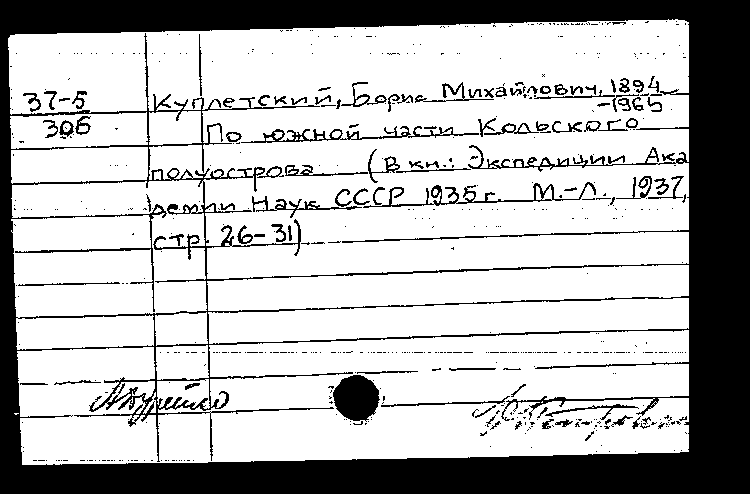 37-5
306
Куплетский, Борис Михайлович, 1894
-1965
По южной части Кольского
полуострова (В кн.: Экспедиции Ака
демии Наук СССР 1935 г. М.-Л., 1937,
стр. 26-31)